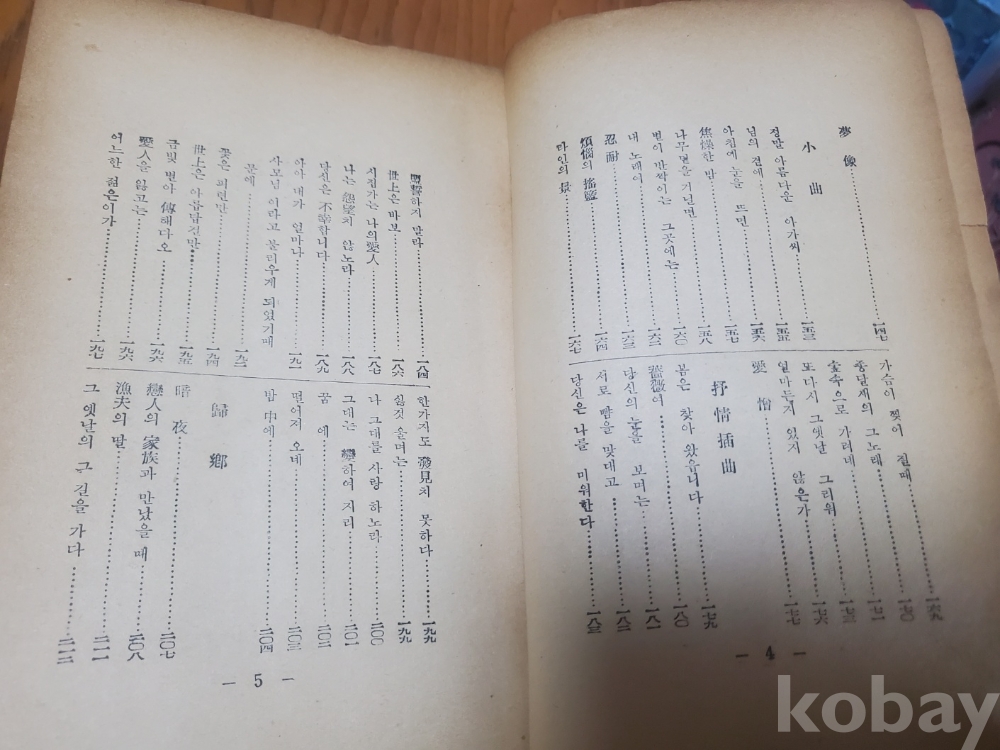 夢像……一四七
小曲
정말 아름다운 아가씨……一五三
님의 곁에……一五五
아침에 눈을 뜨면……一五七
焦燥한 밤……一五八
나무면을 기닌면……一六〇
별이 반짝이는 그곳에는……一六二
내 노래여……一六三
忍耐
煩惱의 搖籃……一六四
라인의 景……一六七
가슴이 찢어 질때……一六九
종달새의 그노래……一七二
숲속으로 가려네……一七三
또다시 그옛날 그리워……一七六
얼마든지 있지 않은가……一七七
愛憎
抒情插曲……一七九
봄은 찾아 왔읍니다……一八〇
薔薇여……一八一
당신의 눈을 보며는……一八二
서로 뺨을 맞대고
당신은 나를 미워한다……一八三
— 4 —
盟誓하지 말라……一八四
世上은 바보……一八六
시집가는 나의 愛人……一八七
나는 怨望치 않노라……一八八
당신은 不幸합니다……一八九
아아 내가 얼마나……一九一
사모님 이라고 불리우게 되었기때
문에……一九二
꽃은 피련만……一九四
世上은 아름답건만……一九五
금빛 별아 傳해다오……一九六
愛人을 잃고는……一九六
어느한 젊은이가……一九七
한가지도 發見치 못하다……一九九
실컷 울며는……一九九
나 그대를 사랑 하노라……二〇〇
그대는 戀하여 지리……二〇一
꿈에……二〇二
떨어져 오네……二〇三
밤 中에……二〇四
歸鄕
暗夜……二〇七
戀人의 家族과 만났을 때……二〇八
漁夫의 말……二一一
그 옛날의 그 길을 가다……二一二
— 5 —
kobay